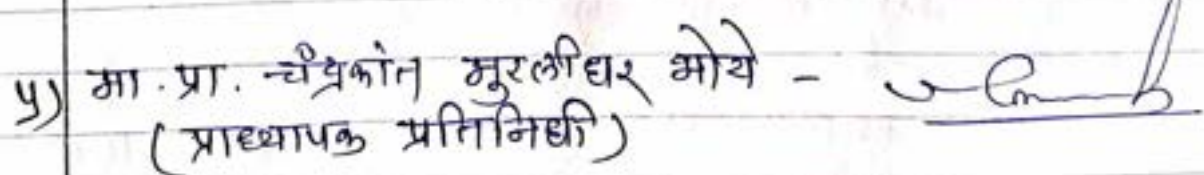 ५) मा. प्रा. चंद्रकांत मुरलीधर भोये -
(प्राध्यापक प्रतिनिधी)